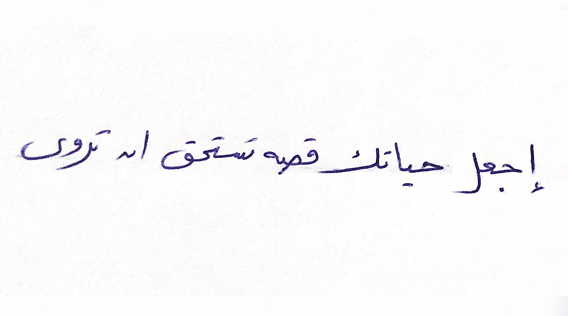 إجعل حياتك قصه تستحق ان تروى